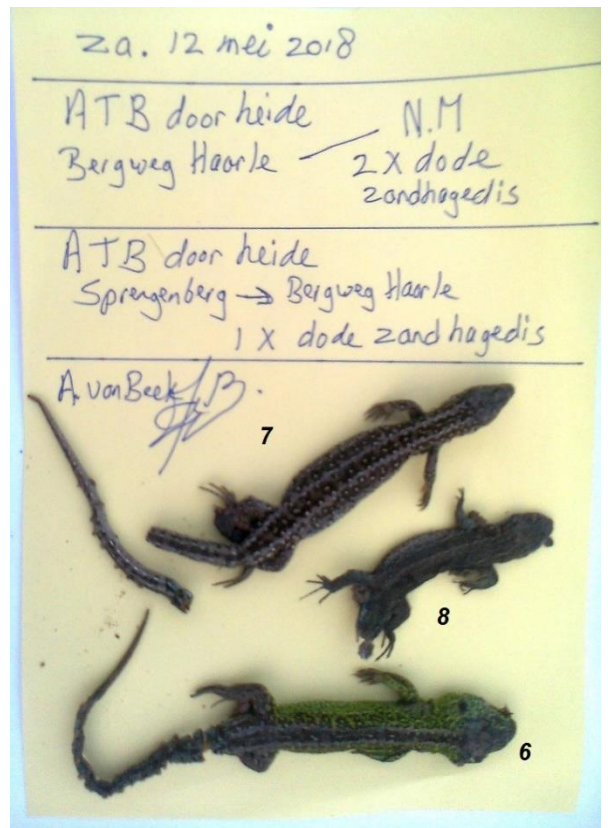 za. 12 mei 2018
ATB door heide
Bergweg Haarle — N.M
2 X dode
zandhagedis
ATB door heide
Sprengenberg → Bergweg Haarle
1 X dode zandhagedis
A. van Beek
7
8
6